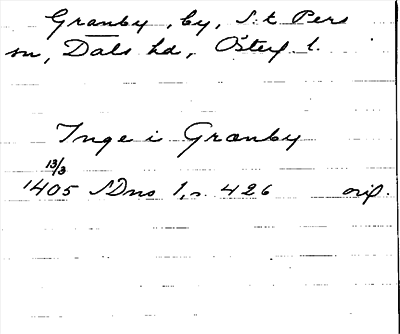 Granby, by, S:t Pers
sn, Dals hd, Österg l.
Inge i Granby
13/3
1405 SDns 1, s. 426 orig.